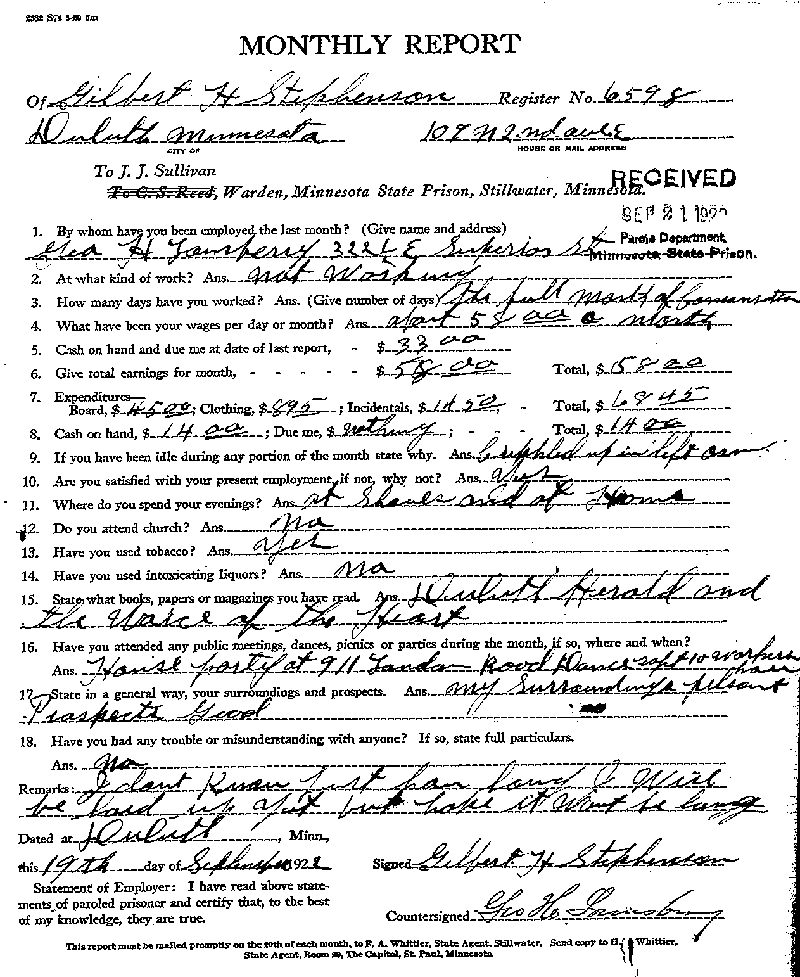 MONTHLY REPORT
Of Gilbert H Stephenson Register No. 6598
Duluth Minnesota 107 N 2nd ave E
CITY OF HOUSE OR MAIL ADDRESS
To J. J. Sullivan
To C. S. Reed, Warden, Minnesota State Prison, Stillwater, Minnesota.
RECEIVED
SEP 21 192
Parole Department,
Minnesota State Prison.
1. By whom have you been employed the last month? (Give name and address)
Geo H 2221 E Superior St
2. At what kind of work? Ans. not Working
3. How many days have you worked? Ans. (Give number of days) the full month of
4. What have been your wages per day or month? Ans. about 58 00 a month
5. Cash on hand and due me at date of last report, - $ 33 00
6. Give total earnings for month, - - - - - $ 58 00 Total, $ 58 00
7. Expenditures—
Board, $ 45 00; Clothing, $ 8 95; Incidentals, $ 14 50 - Total, $ 68 45
8. Cash on hand, $ 14 00; Due me, $ nothing; - - - Total, $ 14 00
9. If you have been idle during any portion of the month state why. Ans. Crippled up in left arm
10. Are you satisfied with your present employment, if not, why not? Ans. Yes
11. Where do you spend your evenings? Ans. at Shows and at Home
12. Do you attend church? Ans. No
13. Have you used tobacco? Ans. Yes
14. Have you used intoxicating liquors? Ans. No
15. State what books, papers or magazines you have read. Ans. Duluth Herald and
the Voice of the Heart
16. Have you attended any public meetings, dances, picnics or parties during the month, if so, where and when?
Ans. House party at 911 London Road Dance sept 10
17. State in a general way, your surroundings and prospects. Ans. my Surroundings are plesant
Prospects Good
18. Have you had any trouble or misunderstanding with anyone? If so, state full particulars.
Ans. No
Remarks: I dont Know just how long I Will
be laid up yet but hope it Wont be long
Dated at Duluth, Minn.,
this 19th day of September 1922 Signed Gilbert H Stephenson
Statement of Employer: I have read above state-
ments of paroled prisoner and certify that, to the best
of my knowledge, they are true. Countersigned Geo H.
This report must be mailed promptly on the 20th of each month, to F. A. Whittier, State Agent, Stillwater. Send copy to Whittier,
State Agent, Room, The Capitol, St. Paul, Minnesota